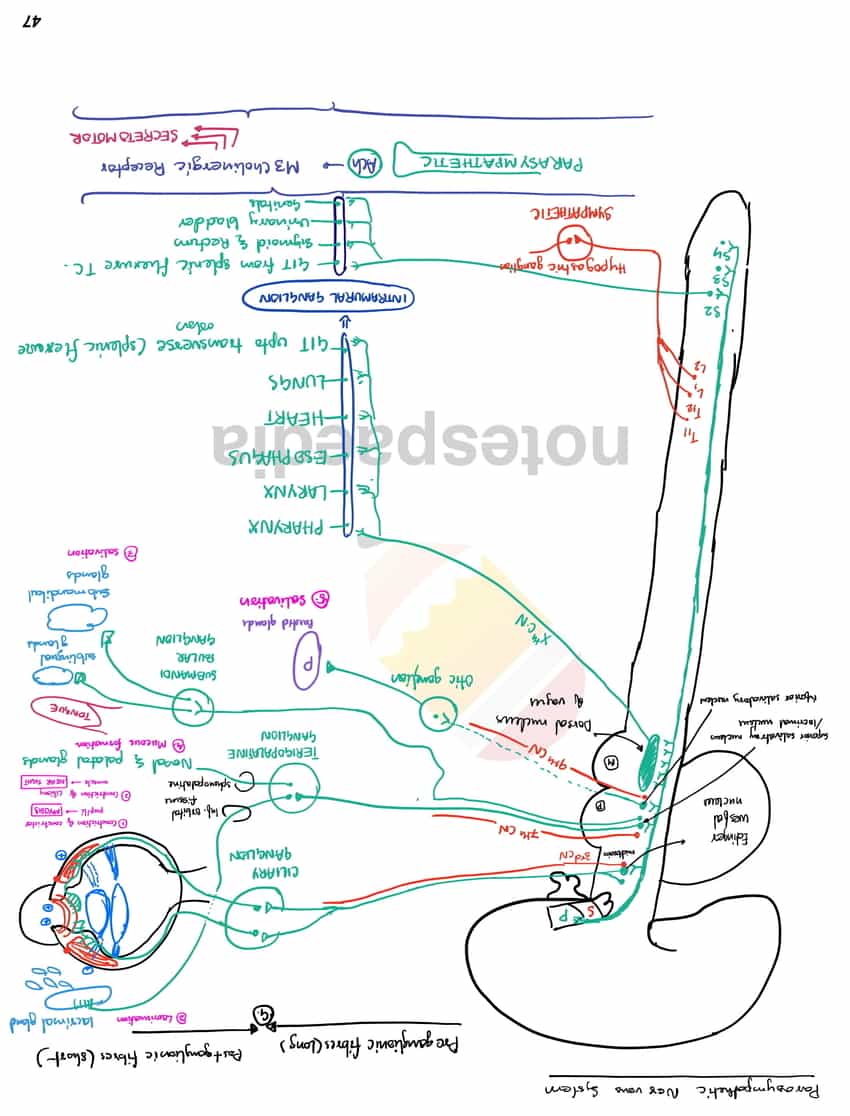 Parasympathetic Nervous System
Preganglionic fibres (long)
G
Postganglionic fibres (short)
③ Lacrimation
lacrimal gland
P
S
CILIARY
GANGLION
3rd CN
midbrain
Edinger
Wesfal
nucleus
① Constriction of constrictor
pupillae
MYOSIS
② Constriction of ciliary
muscle
NEAR SIGHT
Inf. orbital
fissure
sphenopalatine
7th CN
P
④ Mucous formation
Nasal & palatal glands
TERIGOPALATINE
GANGLION
superior salivatory nucleus
/lacrimal nucleus
Inferior salivatory nucleus
9th CN
M
Dorsal nucleus
of vagus
TONGUE
sublingual
glands
SUBMANDI
BULAR
GANGLION
Otic ganglion
P
Parotid glands
⑤ salivation
Xth CN
submandibul
glands
⑦ salivation
PHARYNX
LARYNX
ESOPHAGUS
HEART
LUNGS
GIT upto transverse (splenic flexure
colon
notespaedia
T11
T12
L1
L2
INTRAMURAL GANGLION
S2
S3
S4
GIT from splenic flexure TC.
Sigmoid & Rectum
Urinary bladder
Genitals
Hypogastric ganglion
SYMPATHETIC
PARASYMPATHETIC
Ach
M3 Cholinergic Receptor
SECRETOMOTOR
47